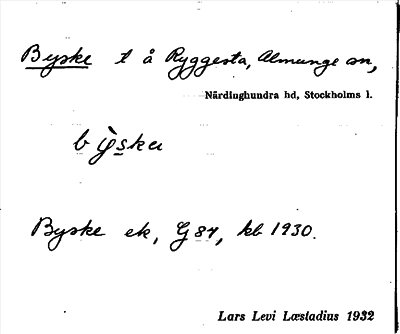 Byske t å Ryggesta, Almunge sn,
Närdinghundra hd, Stockholms l.
bỳska
Byske ek, G 87, kb 1930.
Lars Levi Læstadius 1932